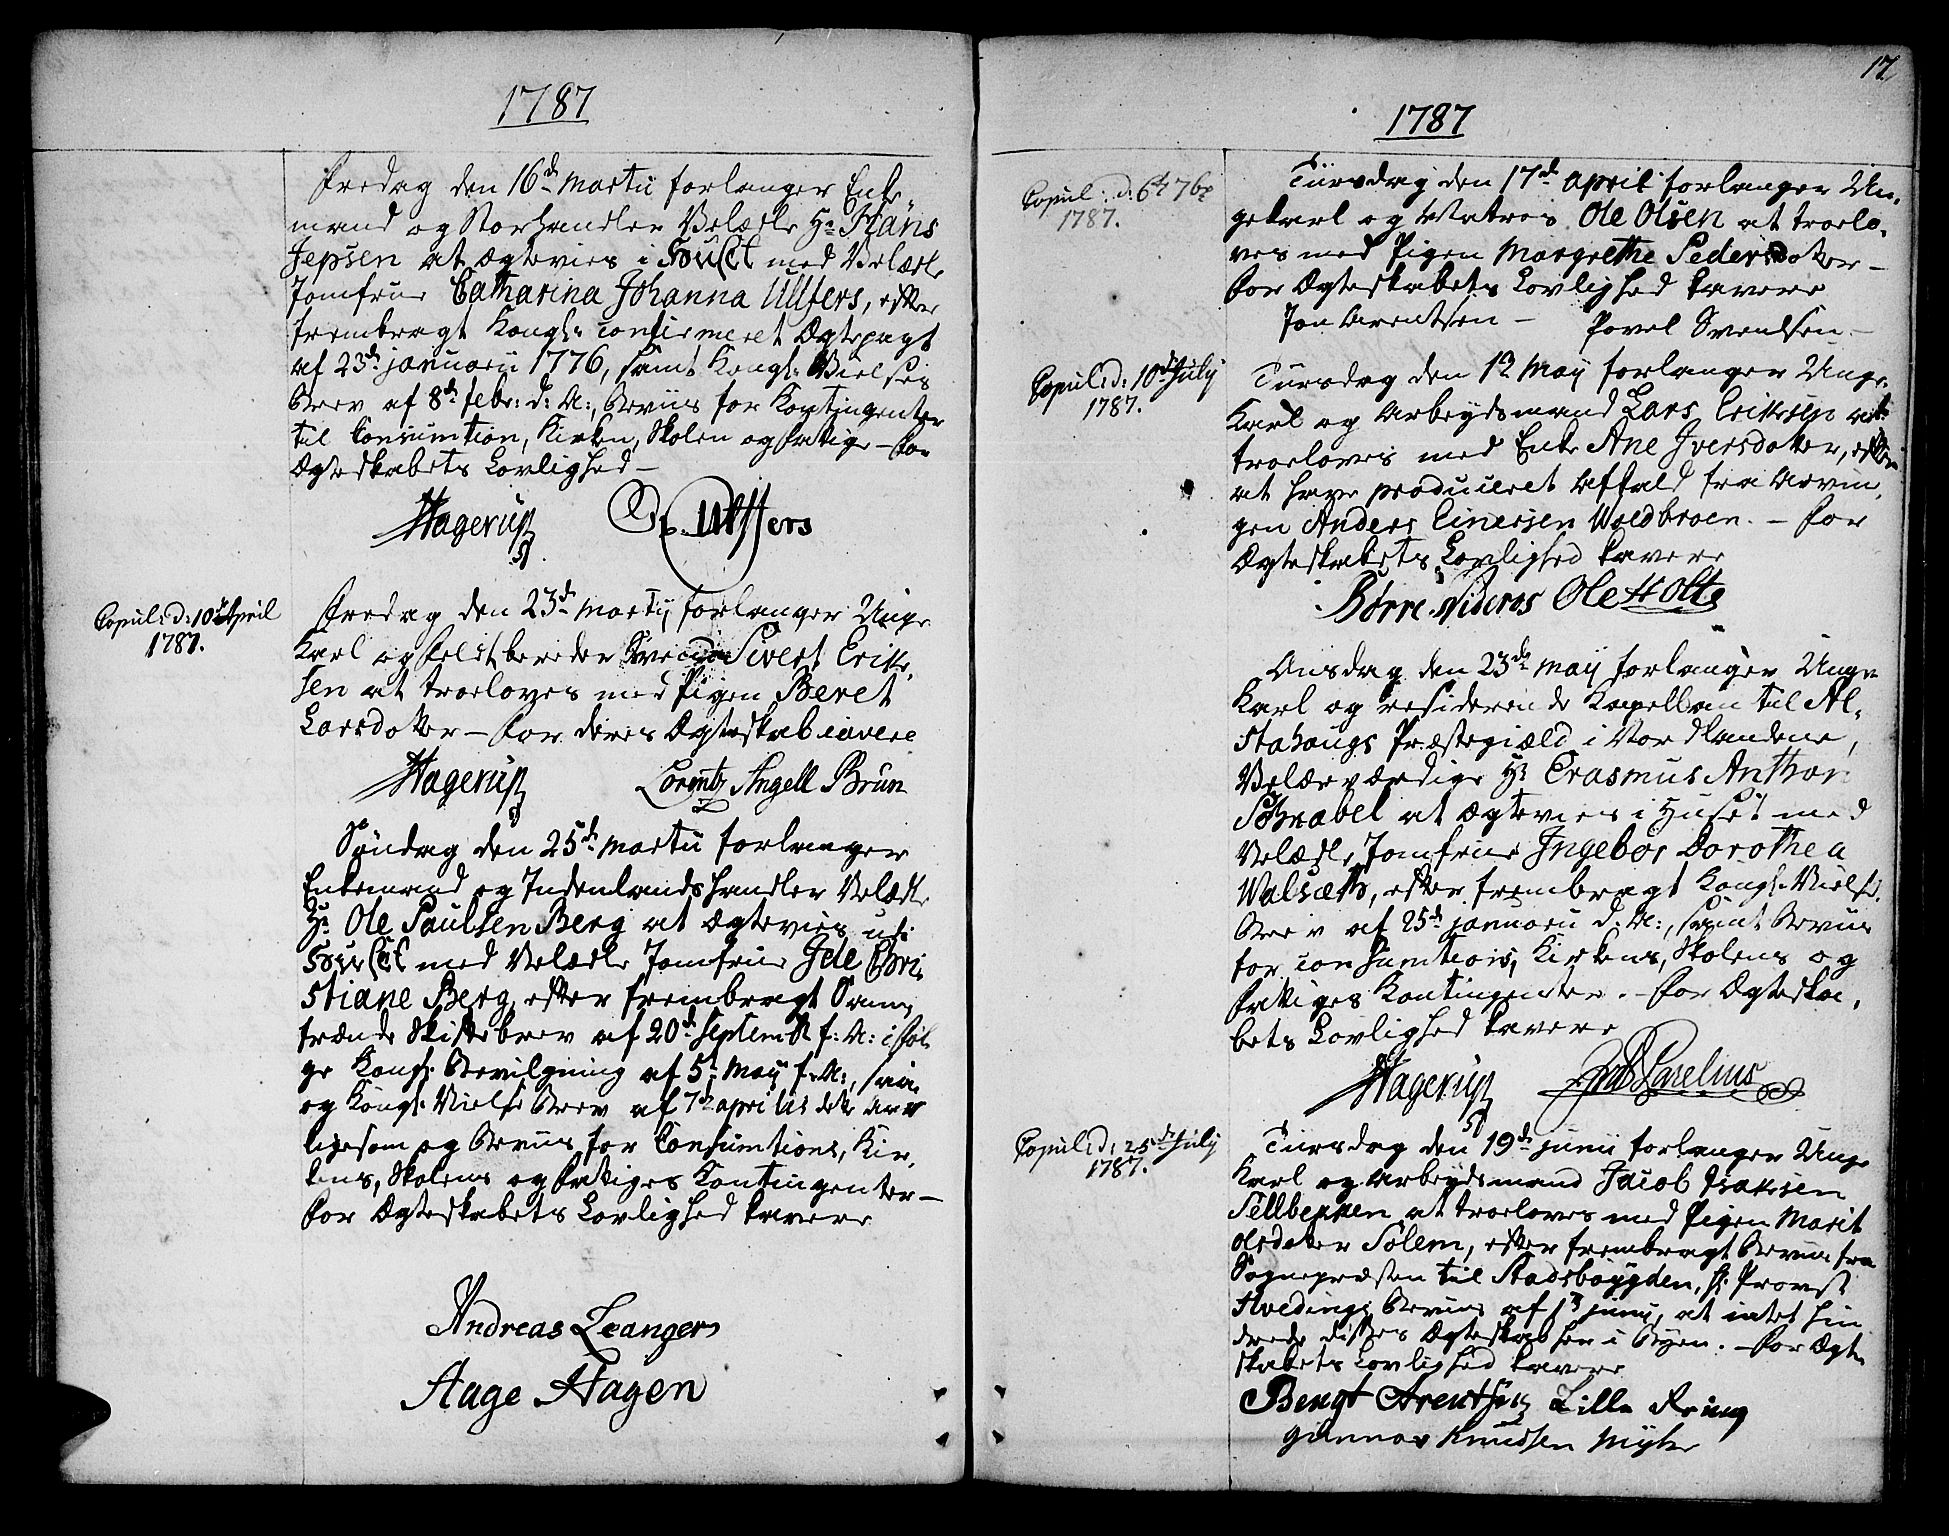 1787
Fredag den 16de Martii forlanger Enke-
mand og Storhandler Velædle Hr Hans
Jepsen at Ægtevies i Huset med Velædle
Jomfrue Catharina Johanna Ulffers, efter
frembragt Kongl: confirmeret Ægtepagt
af 23de januarii 1776, samt Kongl: Vielses
Brev af 8de febr: d: A:, Beviis for Kontingenter
til Consumtion, Kirken, Skolen og fattige – For
Ægteskabets Lovlighed –
Hagerup Ulffers
Copul: d: 10de April
1787.
Fredag den 23de Martii forlanger Unge
Karl og Feldtbereder Svend Sivert Erik-
sen at troeloves med Pigen Beret
Larsdotter – For deres Ægteskab cavere
Hagerup Lorentz Angell Brun
Søndag den 25de Martii forlanger
Enkemand og Indenlandshandler Velædle
Hr Ole Paulsen Berg at Ægtevies udi
Huset med Velædle Jomfrue Ide Chri-
stiane Berg, efter frembragt
Skiftebrev af 20de Septembr f: A: i Føl-
ge Kongl: Bevilgning af 5te Maij f: A:, saa
og Kongl: Vielse Brev af 7de aprilis dette Aar
ligesom og Beviis for Consumtions, Kir-
kens, Skolens og Fattiges Kontingenter –
For Ægteskabets Lovlighed cavere
Andreas Leangen
Aage Hagen
17
1787
Copul: d: 6te 7br
1787.
Tiirsdag den 17de april forlanger Un-
gekarl og Matros Ole Olsen at troelo-
ves med Pigen Margrethe Pedersdotter –
For Ægteskabets Lovlighed cavere
Jon Arentsen – Povel Svendsen –
Copul: d: 10de July
1787.
Tiirsdag den 12 Maij forlanger Unge-
Karl og Arbeydsmand Lars Eriksen at
troeloves med Enke Ane Iversdotter, efter
at have produceret Affald fra Arvin-
gen Anders Einersen Woldbroen. – For
Ægteskabets Lovlighed cavere
Børre Nideros Ole Holte
Onsdag den 23de Maij forlanger Unge
Karl og residerende Kapellan til Al-
stahougs Præstegiæld i Nordlandene,
Velærværdige Hr Erasmus Anthon
Schnabel at Ægtevies i Huset med
Velædle Jomfrue Ingebor Dorothea
Walseth, efter frembragt Kongl: Vielse
Brev af 25de januarii d: A:, samt Beviis
for consumtions, Kirkens, Skolens og
Fattiges Kontingenter. – For Ægteska-
bets Lovlighed cavere
Hagerup Parelius
Copul: d: 25de July
1787.
Tiirsdag den 19de junii forlanger Unge
Karl og Arbeydsmand Jacob Isaksen
Sellbekken at troeloves med Pigen Marit
Olsdotter Solem, efter frembragt Beviis fra
Sognepræsten til Stadsbøygden, Hr Provst
Hvedings Beviis af 1te junii, at intet hin
drede disses Ægteskab her i Byen. – For Ægte
skabets Lovlighed cavere
Bengt Arentsen Lille Ring
Gunnar Knudsen Myhr